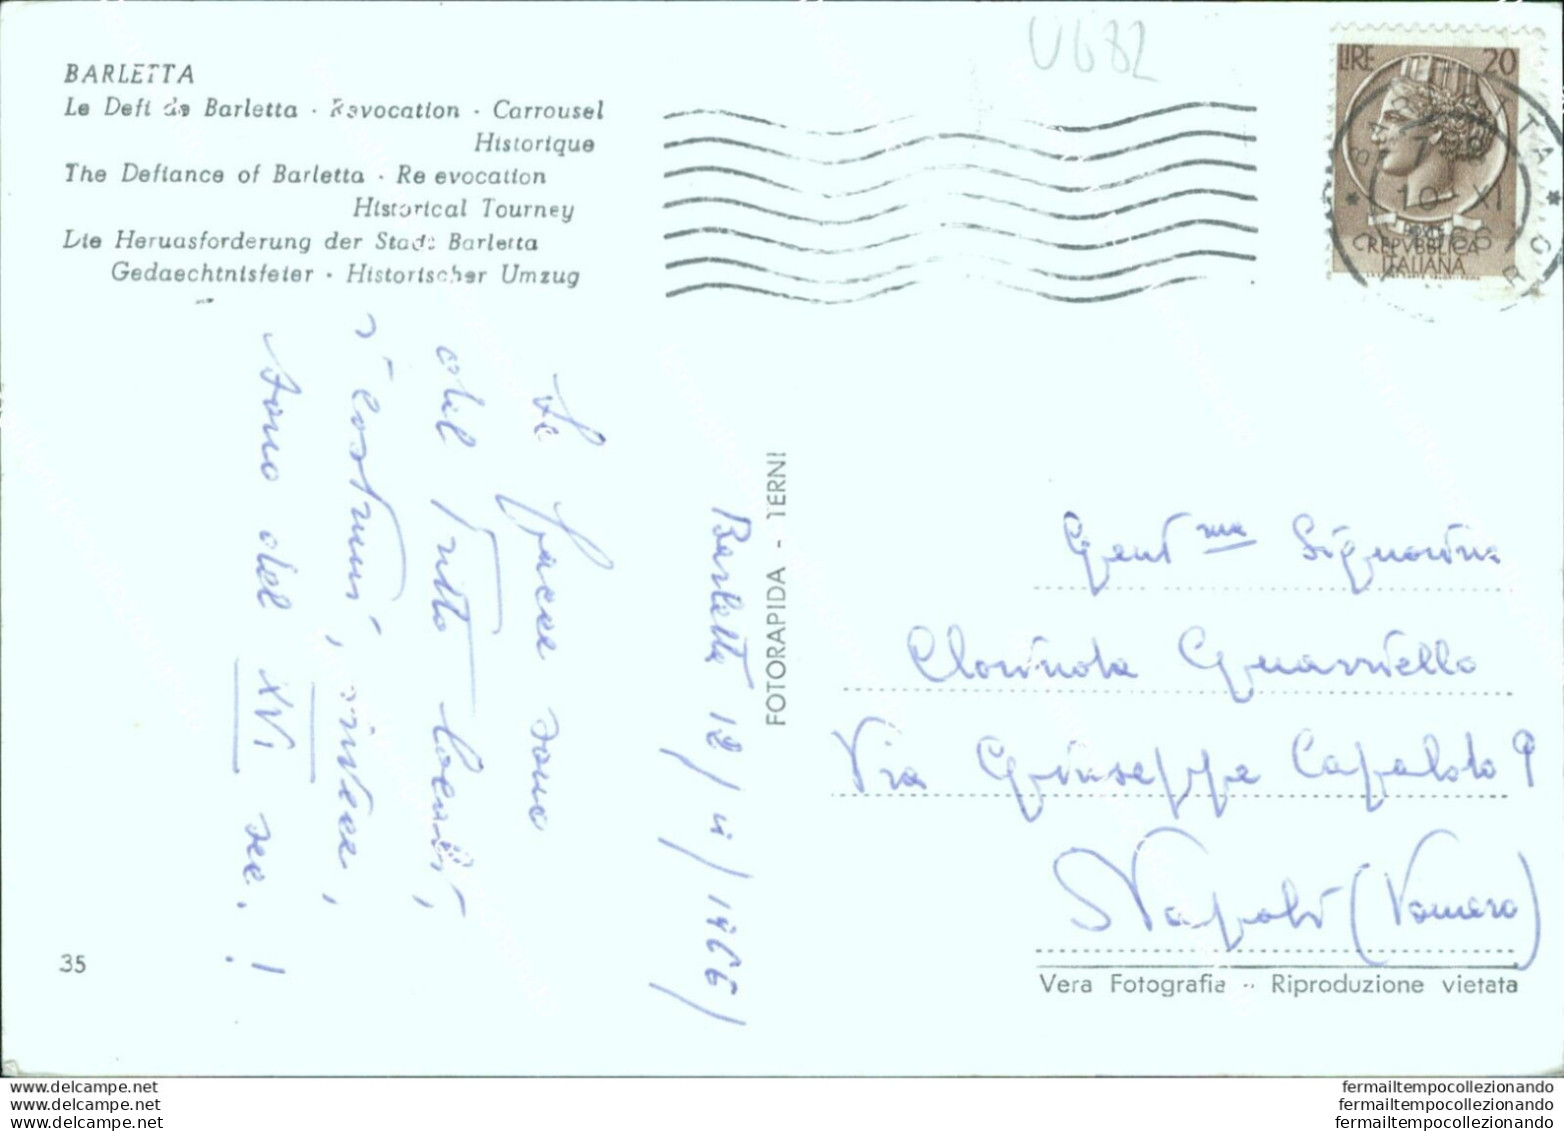 U682
BARLETTA
Le Defi de Barletta · Revocation · Carrousel
Historique
The Defiance of Barletta · Re evocation
Historical Tourney
Die Heruasforderung der Stadt Barletta
Gedaechtnisfeier · Historischer Umzug
LIRE 20
REPVBBLICA
ITALIANA
10 XI
Le facce sono
del tutto locali,
i costumi, invece,
sono del XVI sec. !
Barletta 12/11/1966
FOTORAPIDA - TERNI
Gent.ma Signorina
Clorinda Guarriello
Via Giuseppe Capaldo 9
Napoli (Vomero)
35
Vera Fotografia - Riproduzione vietata
www.delcampe.net
www.delcampe.net
www.delcampe.net
fermailtempocollezionando
fermailtempocollezionando
fermailtempocollezionando